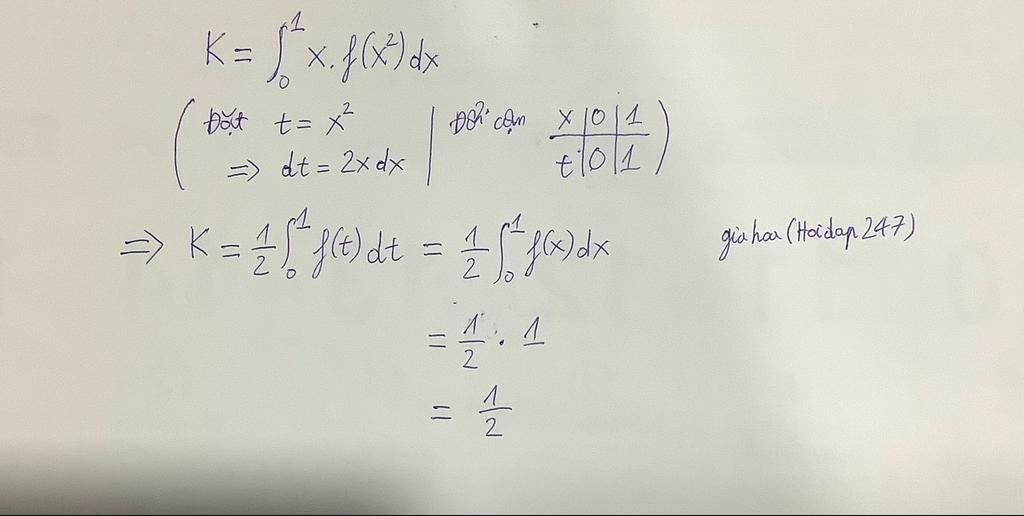 K = ∫₀¹ x. f(x²) dx
( Đặt t = x² | Đổi cận x | 0 | 1 )
⇒ dt = 2x dx | t | 0 | 1
⇒ K = 1/2 ∫₀¹ f(t) dt = 1/2 ∫₀¹ f(x) dx
giahoa (Hoidap247)
= 1/2 . 1
= 1/2